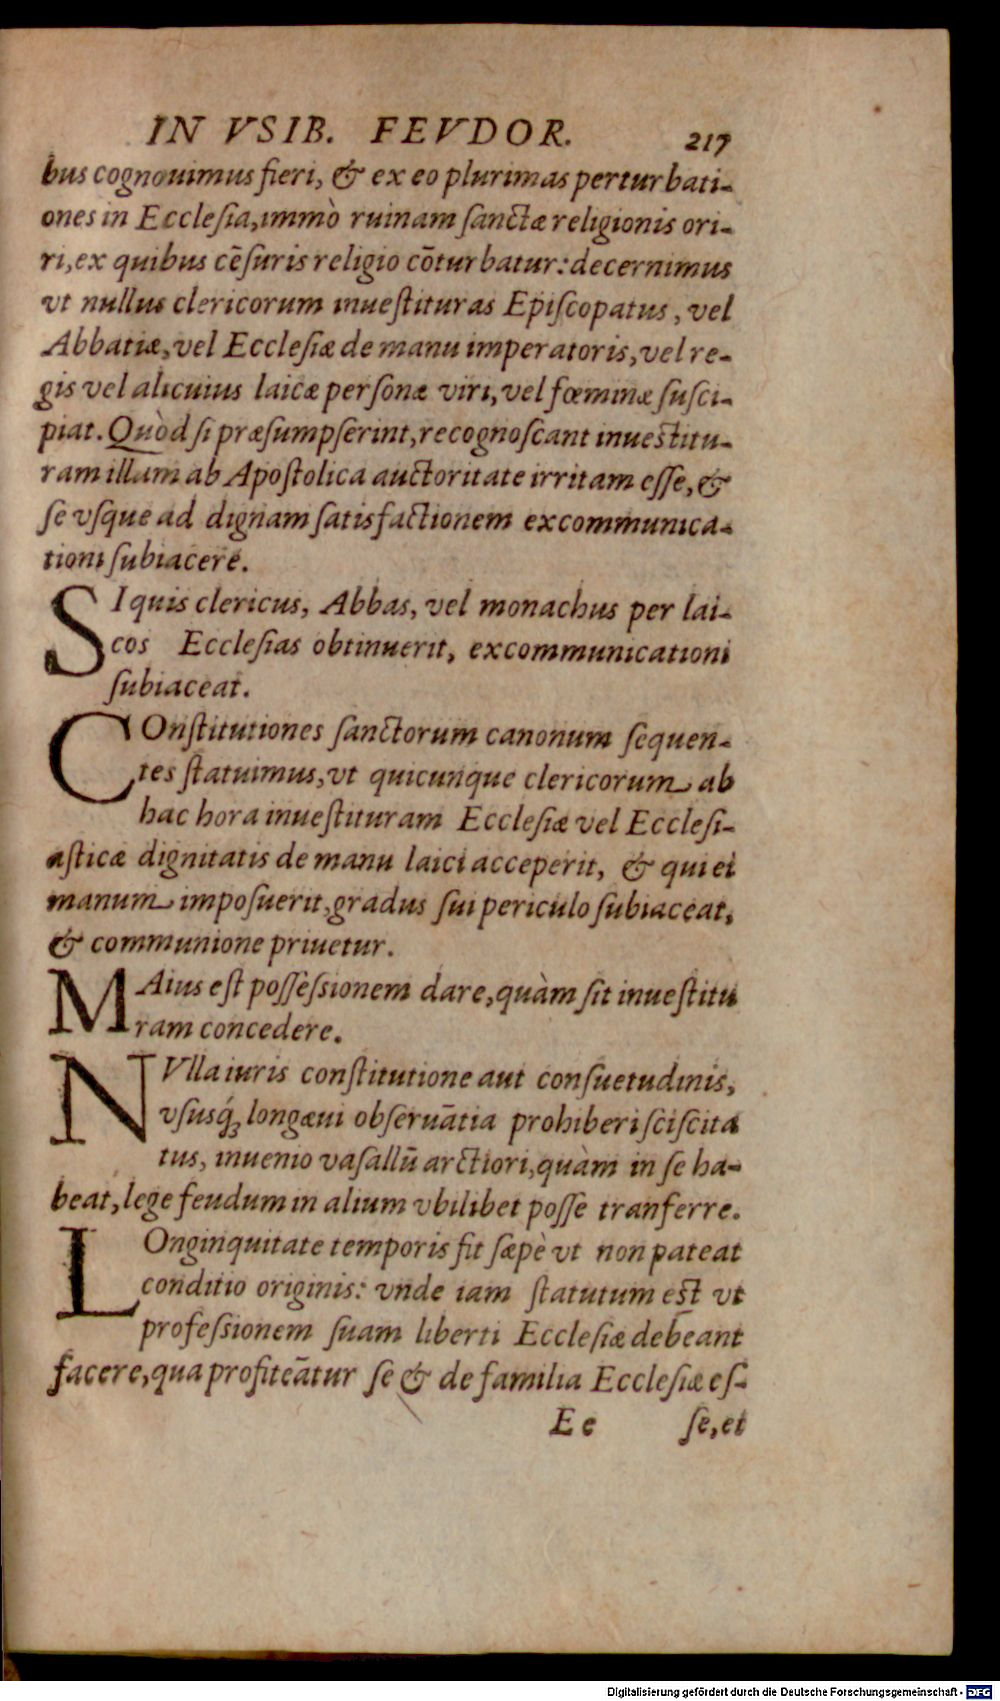 IN VSIB. FEVDOR. 217
bus cognouimus fieri, & ex eo plurimas perturbati-
ones in Ecclesia, immò ruinam sanctæ religionis ori-
ri, ex quibus cēsuris religio cōturbatur: decernimus
vt nullus clericorum inuestituras Episcopatus, vel
Abbatiæ, vel Ecclesiæ de manu imperatoris, vel re-
gis vel alicuius laicæ personæ viri, vel fœminæ susci-
piat. Quòd si præsumpserint, recognoscant inuestitu-
ram illam ab Apostolica auctoritate irritam esse, &
se vsque ad dignam satisfactionem excommunica-
tioni subiacere.
SI quis clericus, Abbas, vel monachus per lai-
cos Ecclesias obtinuerit, excommunicationi
subiaceat.
COnstitutiones sanctorum canonum sequen-
tes statuimus, vt quicunque clericorum ab
hac hora inuestituram Ecclesiæ vel Ecclesi-
asticæ dignitatis de manu laici acceperit, & qui ei
manum imposuerit, gradus sui periculo subiaceat,
& communione priuetur.
MAius est possèssionem dare, quàm sit inuestitu
ram concedere.
NVlla iuris constitutione aut consuetudinis,
vsusq́; longæui obseruātia prohiberi sciscita
tus, inuenio vasallū arctiori, quàm in se ha-
beat, lege feudum in alium vbilibet posse tranferre.
LOnginquitate temporis fit sæpè vt non pateat
conditio originis: vnde iam statutum est vt
professionem suam liberti Ecclesiæ debeant
facere, qua profiteātur se & de familia Ecclesiæ es-
Ee se, et
Digitalisierung gefördert durch die Deutsche Forschungsgemeinschaft - DFG